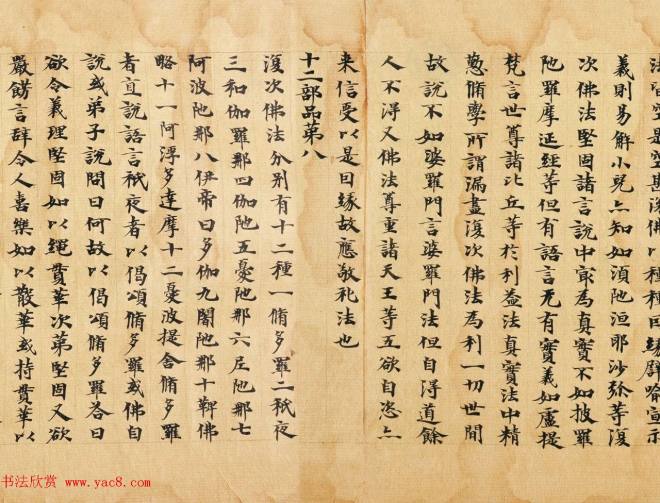 法皆空是空甚深佛以種種因緣辟喻宣示
義則易解小兒亦知如須陁洹耶沙弥等復
次佛法堅固諸言說中㝡為真實不如披羅
陁羅摩延經等但有語言无有實義如虛提
梵言世尊諸比丘等於利益法真實法中精
懃脩學所謂漏盡復次佛法為利一切世間
故說不如婆羅門言婆羅門法但自得道餘
人不得又佛法尊重諸天王等五欲自恣亦
来信受以是因緣故應敬礼法也
十二部品弟八
復次佛法分別有十二種一脩多羅二祇夜
三和伽羅那四伽陁五憂陁那六尼陁那七
阿波陁那八伊帝曰多伽九闍陁那十鞞佛
略十一阿浮多達摩十二憂波提舍脩多羅
者直說語言祇夜者以偈頌脩多羅或佛自
說或弟子說問曰何故以偈頌脩多羅答曰
欲令義理堅固如以繩貫華次第堅固又欲
嚴餝言辞令人喜樂如以散華或持貫華以
书法欣赏 www.yac8.com